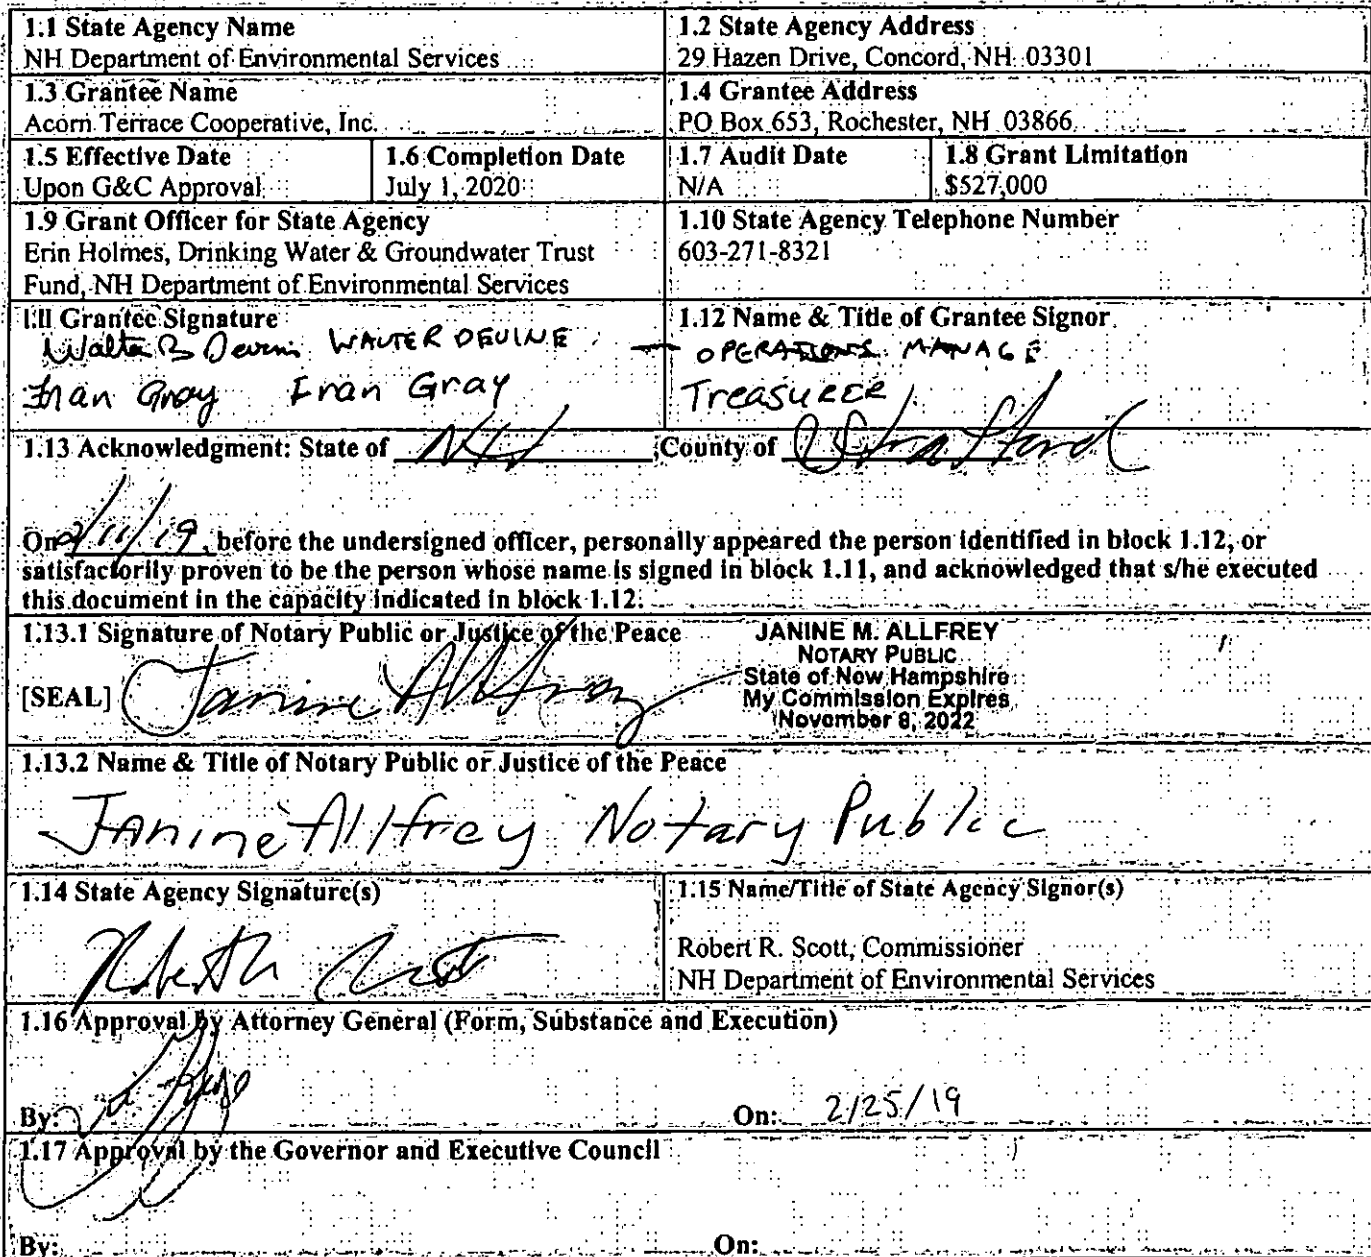 1.1 State Agency Name
NH Department of Environmental Services
1.2 State Agency Address
29 Hazen Drive, Concord, NH 03301
1.3 Grantee Name
Acorn Terrace Cooperative, Inc.
1.4 Grantee Address
PO Box 653, Rochester, NH 03866
1.5 Effective Date
Upon G&C Approval
1.6 Completion Date
July 1, 2020
1.7 Audit Date
N/A
1.8 Grant Limitation
$527,000
1.9 Grant Officer for State Agency
Erin Holmes, Drinking Water & Groundwater Trust
Fund, NH Department of Environmental Services
1.10 State Agency Telephone Number
603-271-8321
1.11 Grantee Signature
Walter B Devine WALTER DEVINE
Fran Gray Fran Gray
1.12 Name & Title of Grantee Signor
OPERATIONS MANAGE
Treasurer
1.13 Acknowledgment: State of NH County of Strafford
On 2/11/19, before the undersigned officer, personally appeared the person identified in block 1.12, or
satisfactorily proven to be the person whose name is signed in block 1.11, and acknowledged that s/he executed
this document in the capacity indicated in block 1.12.
1.13.1 Signature of Notary Public or Justice of the Peace
[SEAL] Janine Allfrey
JANINE M. ALLFREY
NOTARY PUBLIC
State of New Hampshire
My Commission Expires
November 8, 2022
1.13.2 Name & Title of Notary Public or Justice of the Peace
Janine Allfrey Notary Public
1.14 State Agency Signature(s)
1.15 Name/Title of State Agency Signor(s)
Robert R. Scott, Commissioner
NH Department of Environmental Services
1.16 Approval by Attorney General (Form, Substance and Execution)
By: On: 2/25/19
1.17 Approval by the Governor and Executive Council
By: On: